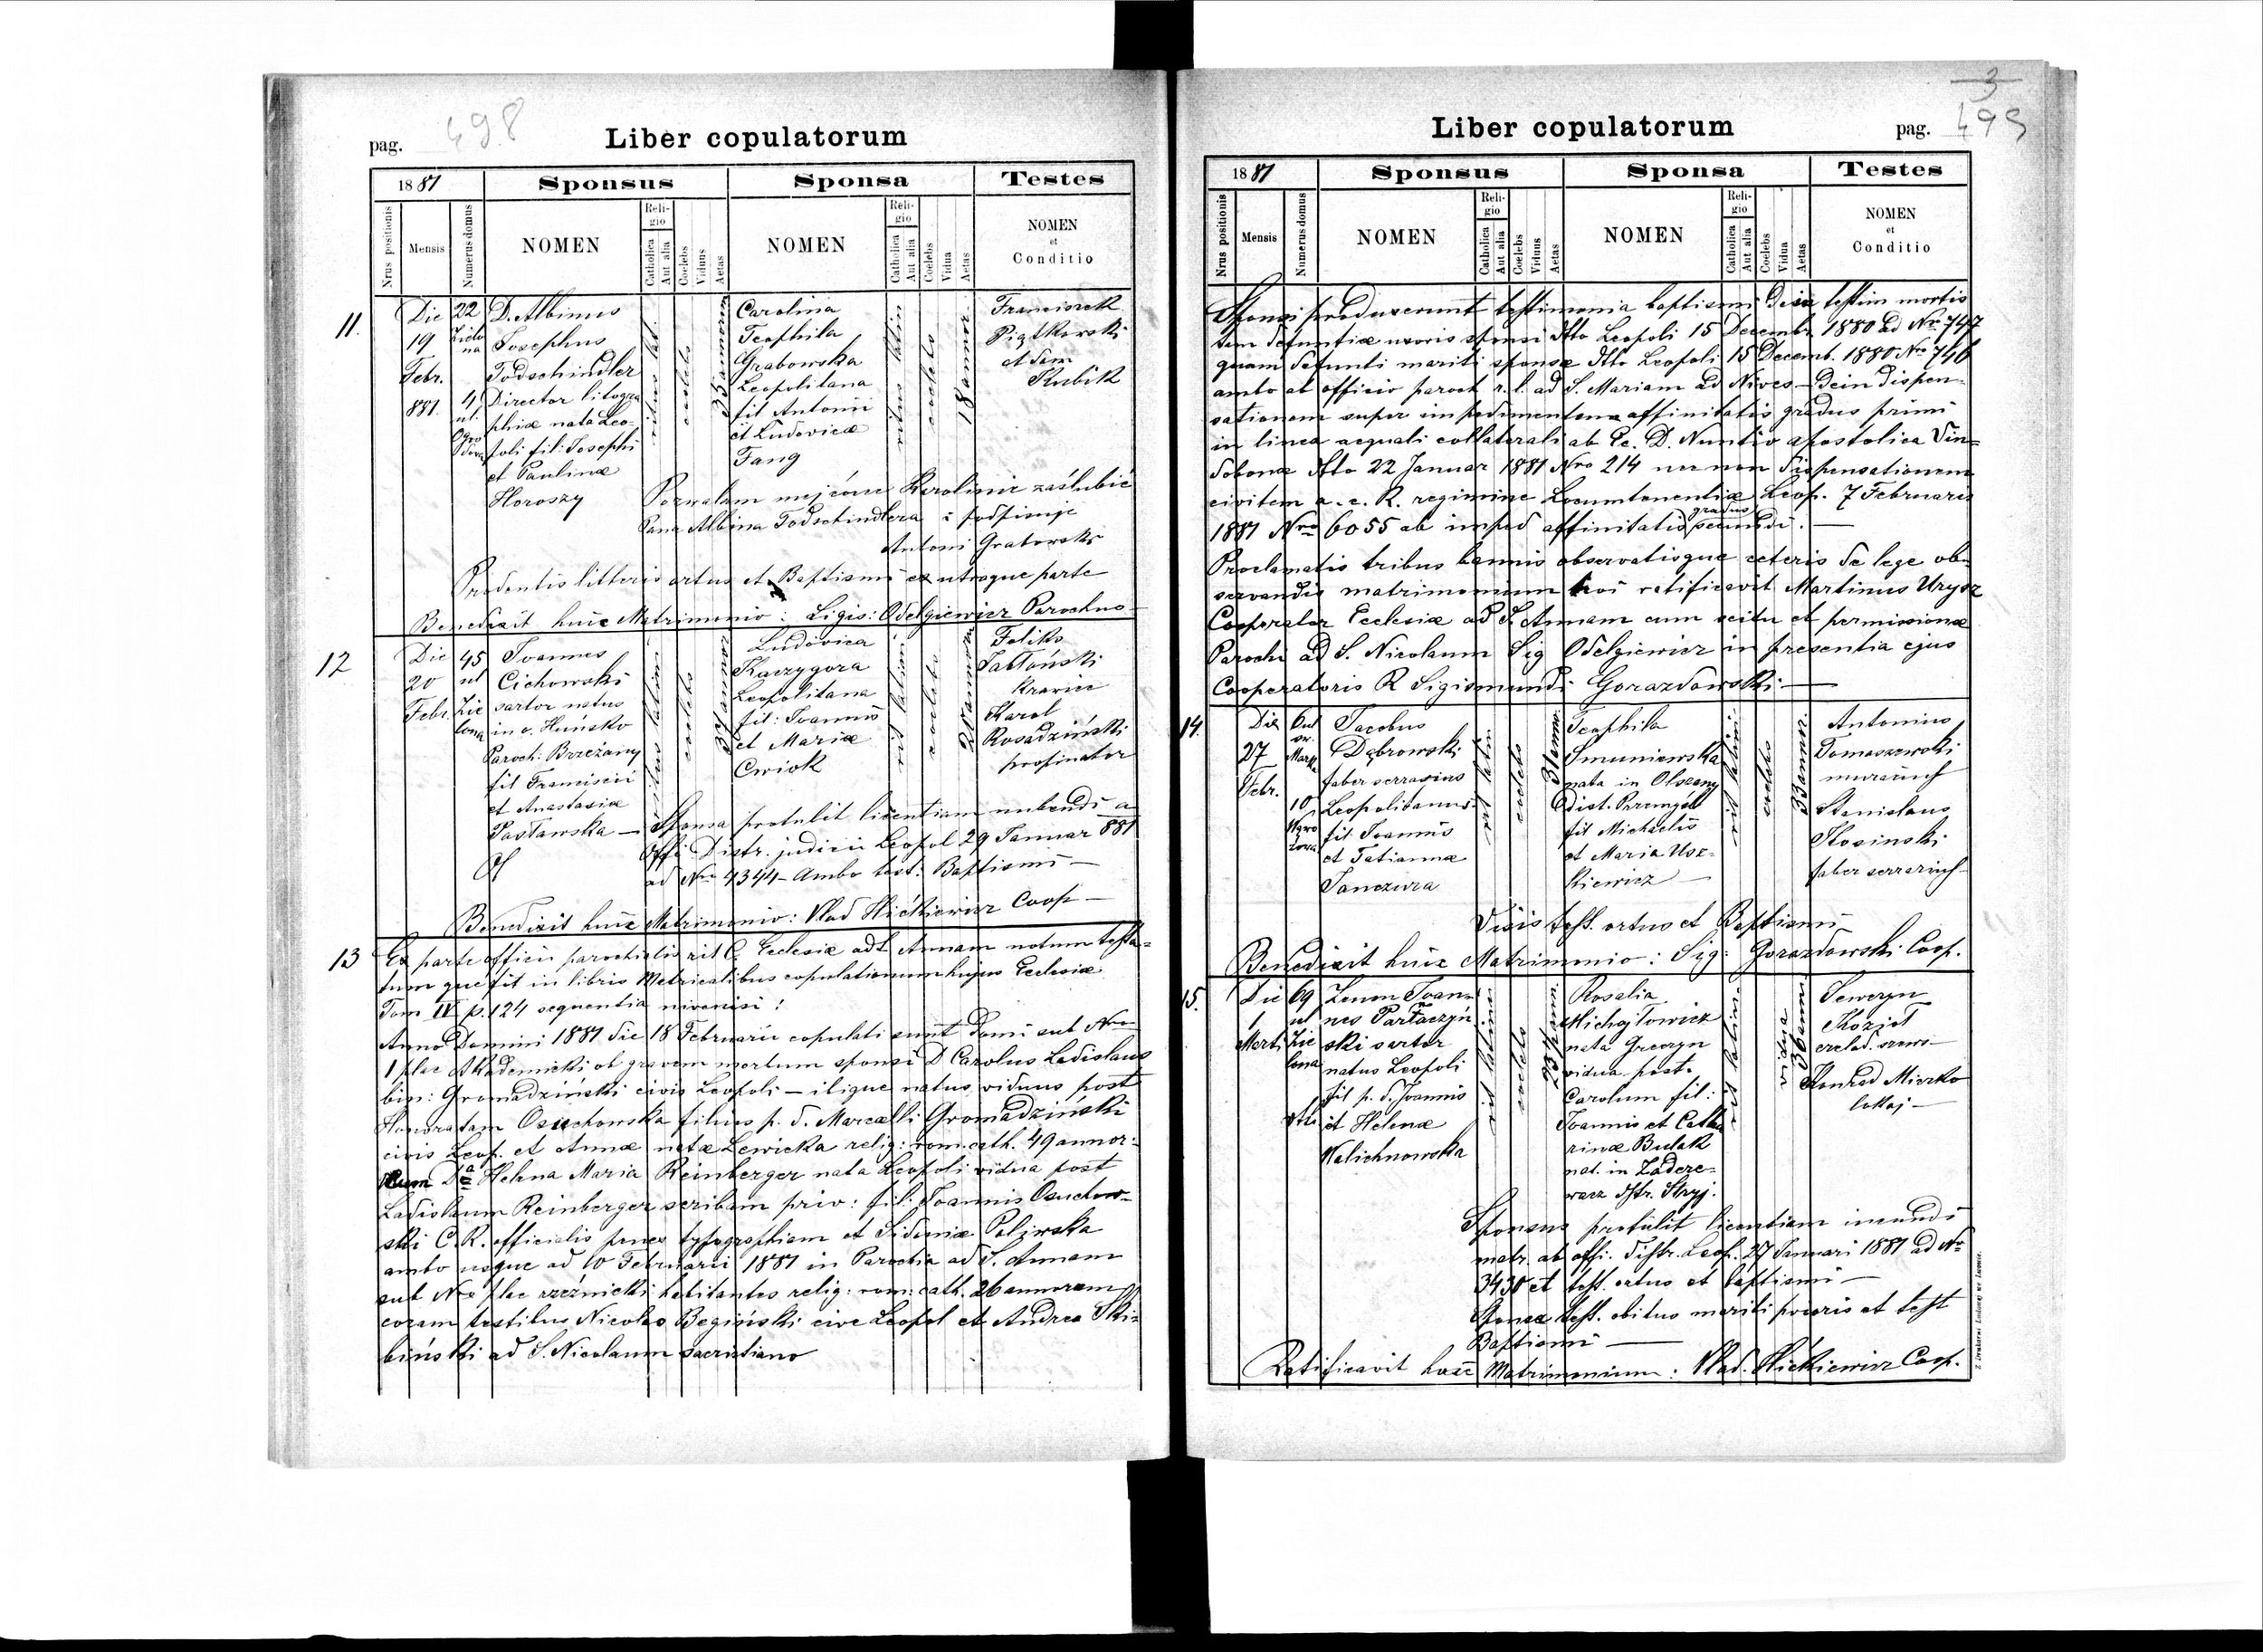 498
pag.
Liber copulatorum
1881
Sponsus
Sponsa
Testes
Nrus positionis
Mensis
Numerus domus
NOMEN
Religio
Catholica
Aut alia
Coelebs
Viduus
Aetas
NOMEN
Religio
Catholica
Aut alia
Coelebs
Vidua
Aetas
NOMEN
et
Conditio
11.
Die
19
Febr.
881.
22
Zielo
na
4
ul.
Ogro
dowa
D. Albinus
Josephus
Todschindler
Director litogra
phiae nata Leo-
poli fil: Josephi
et Paulinae
Horoszy
ritus lati.
coelebs
33 annorum
Carolina
Teophila
Grabowska
Leopolitana
fil Antonii
et Ludovicae
Fang
ritus latin
coelebs
18 annor.
Franciszek
Piątkowski
Adam
Kubik
Pozwalam mojej córce Karolinie zaślubić
Pana Albina Todschindlera i podpisuję
Antoni Grabowski
Productis litteris ortus et Baptismi ex utroque parte
Benedixit huic Matrimonio: Sigis: Odelgiewicz Parochus
12
Die
20
Febr.
45
ul
Zie
lona
Joannes
Cichowski
sartor natus
in v. Huńsko
Paroch: Brzeżany
fil Francisci
et Anastasiae
Pastawska —
ritus latini
coelebs
34 annor
Ludovica
Kaczygora
Leopolitana
fil: Joannis
et Mariae
Cwiok
rit latini
coelebs
20 annor.
Feliks
Jabłoński
Krawiec
Karol
Rosadziński
propinator
Sponsa protulit licentiam nubendi a
Offi Distr. judicii Leopol 29 Januar 881
ad Nro 4344 - Ambo test: Baptismi —
Benedixit huic Matrimonio: Vlad Hićkiewicz Coop —
13
Ex parte officii parochialis rit l. Ecclesiae ad S. Annam notum testa-
tum que fit in libris Metricalibus copulationum hujus Ecclesiae
Tom IV p. 124 sequentia
Anno Domini 1881 die 18 Februarii copulati sunt Domi sub Nro
1 plac Akademicki ob gravem morbum sponsi D Carolus Ladislaus
bin: Gromadziński civis Leopoli — ibique natus viduus post
Honoratam Osuchowska filius p. d. Marcelli Gromadziński
civis Leop. et Annae natae Lewicka relig: rom. cath. 49 annor:
cum Da Helena Maria Reinberger nata Leopoli vidua post
Ladislaum Reinberger scribam priv: fil: Joannis Osuchow-
ski C. R. officialis penes typographiam et Sidoniae
ambo usque ad 10 Februarii 1881 in Parochia ad S. Annam
sub Nro plac rzeźnicki habitantes relig: rom: cath. 26 annorum
coram testibus Nicolao Begiński cive Leopol et Andrea Ski-
biński ad S. Nicolaum sacristiano
3
499
Liber copulatorum
pag.
1881
Sponsus
Sponsa
Testes
Nrus positionis
Mensis
Numerus domus
NOMEN
Religio
Catholica
Aut alia
Coelebs
Viduus
Aetas
NOMEN
Religio
Catholica
Aut alia
Coelebs
Vidua
Aetas
NOMEN
et
Conditio
Sponsi produxerunt testimonia baptismi dein testim mortis
tam defunctae uxoris sponsi dto Leopoli 15 Decembr. 1880 ad Nro 747
quam defuncti mariti sponsae dto Leopoli 15 Decemb. 1880 Nro 746
ambo ab officio paroch r. l. ad S. Mariam ad Nives — Dein dispen-
sationem super impedimentum affinitatis gradus primi
in linea aequali collaterali ab Ec. D. Nuntio apostolica Vin-
dobonae dto 22 Januar 1881 Nro 214 nec non dispensationem
civilem a. c. R. regimine Locumtenentiae Leop. 7 Februarii
1881 Nro 6055 ab imped affinitatis gradus secundi. —
Proclamatis tribus bannis observatisque ceteris de lege ob-
servandis matrimonium hoc ratificavit Martinus Urysz
Cooperator Ecclesiae ad S. Annam cum scitu et permissione
Parochi ad S. Nicolaum Sig Odelgiewicz in presentia ejus
Cooperatoris R Sigismundi Gorazdowski —
14.
Die
27
Febr.
10
Jacobus
Dąbrowski
faber serrarius
Leopolitanus
fil Joannis
et Tatianna
Janczura
rit latin
coelebs
31 ann.
Teophila
Smuniewska
nata in Olszany
dist. Przemyśl
fil Michaelis
et Maria Usz-
kiewicz —
rit latini
coelebs
33 annor.
Antonius
Tomaszewski
Stanislaus
Kosinski
faber serrarius
Visis test. ortus et Baptismi
Benedixit huic Matrimonio: Sig: Gorazdowski Coop.
15.
Die
1
Marti
69
ul
Zie
lona
Zenon Joan-
nes Partaczyń
ski sartor
natus Leopoli
fil p. d. Joannis
et Helenae
Walichnowska
rit latinus
coelebs
23½ ann.
Rosalia
Michajłowicz
nata Greczyn
vidua post.
Carolum fil:
Joannis et Catha
rinae Bulak
nat. in Zadere-
wacz dstr. Stryj.
rit latini
vidua
36 anni
Seweryn
Kozioł
czelad. szews —
Konrad Mierzko
lokaj —
Sponsus protulit licentiam ineundi
matr. ab offi. distr. Leop. 27 Januari 1881 ad Nro
3430 et test. ortus et baptismi —
Sponsa test. obitus mariti prioris et test
Baptismi —
Ratificavit hocce Matrimonium: Vlad. Hićkiewicz Coop.
Z Drukarni Ludowej we Lwowie.